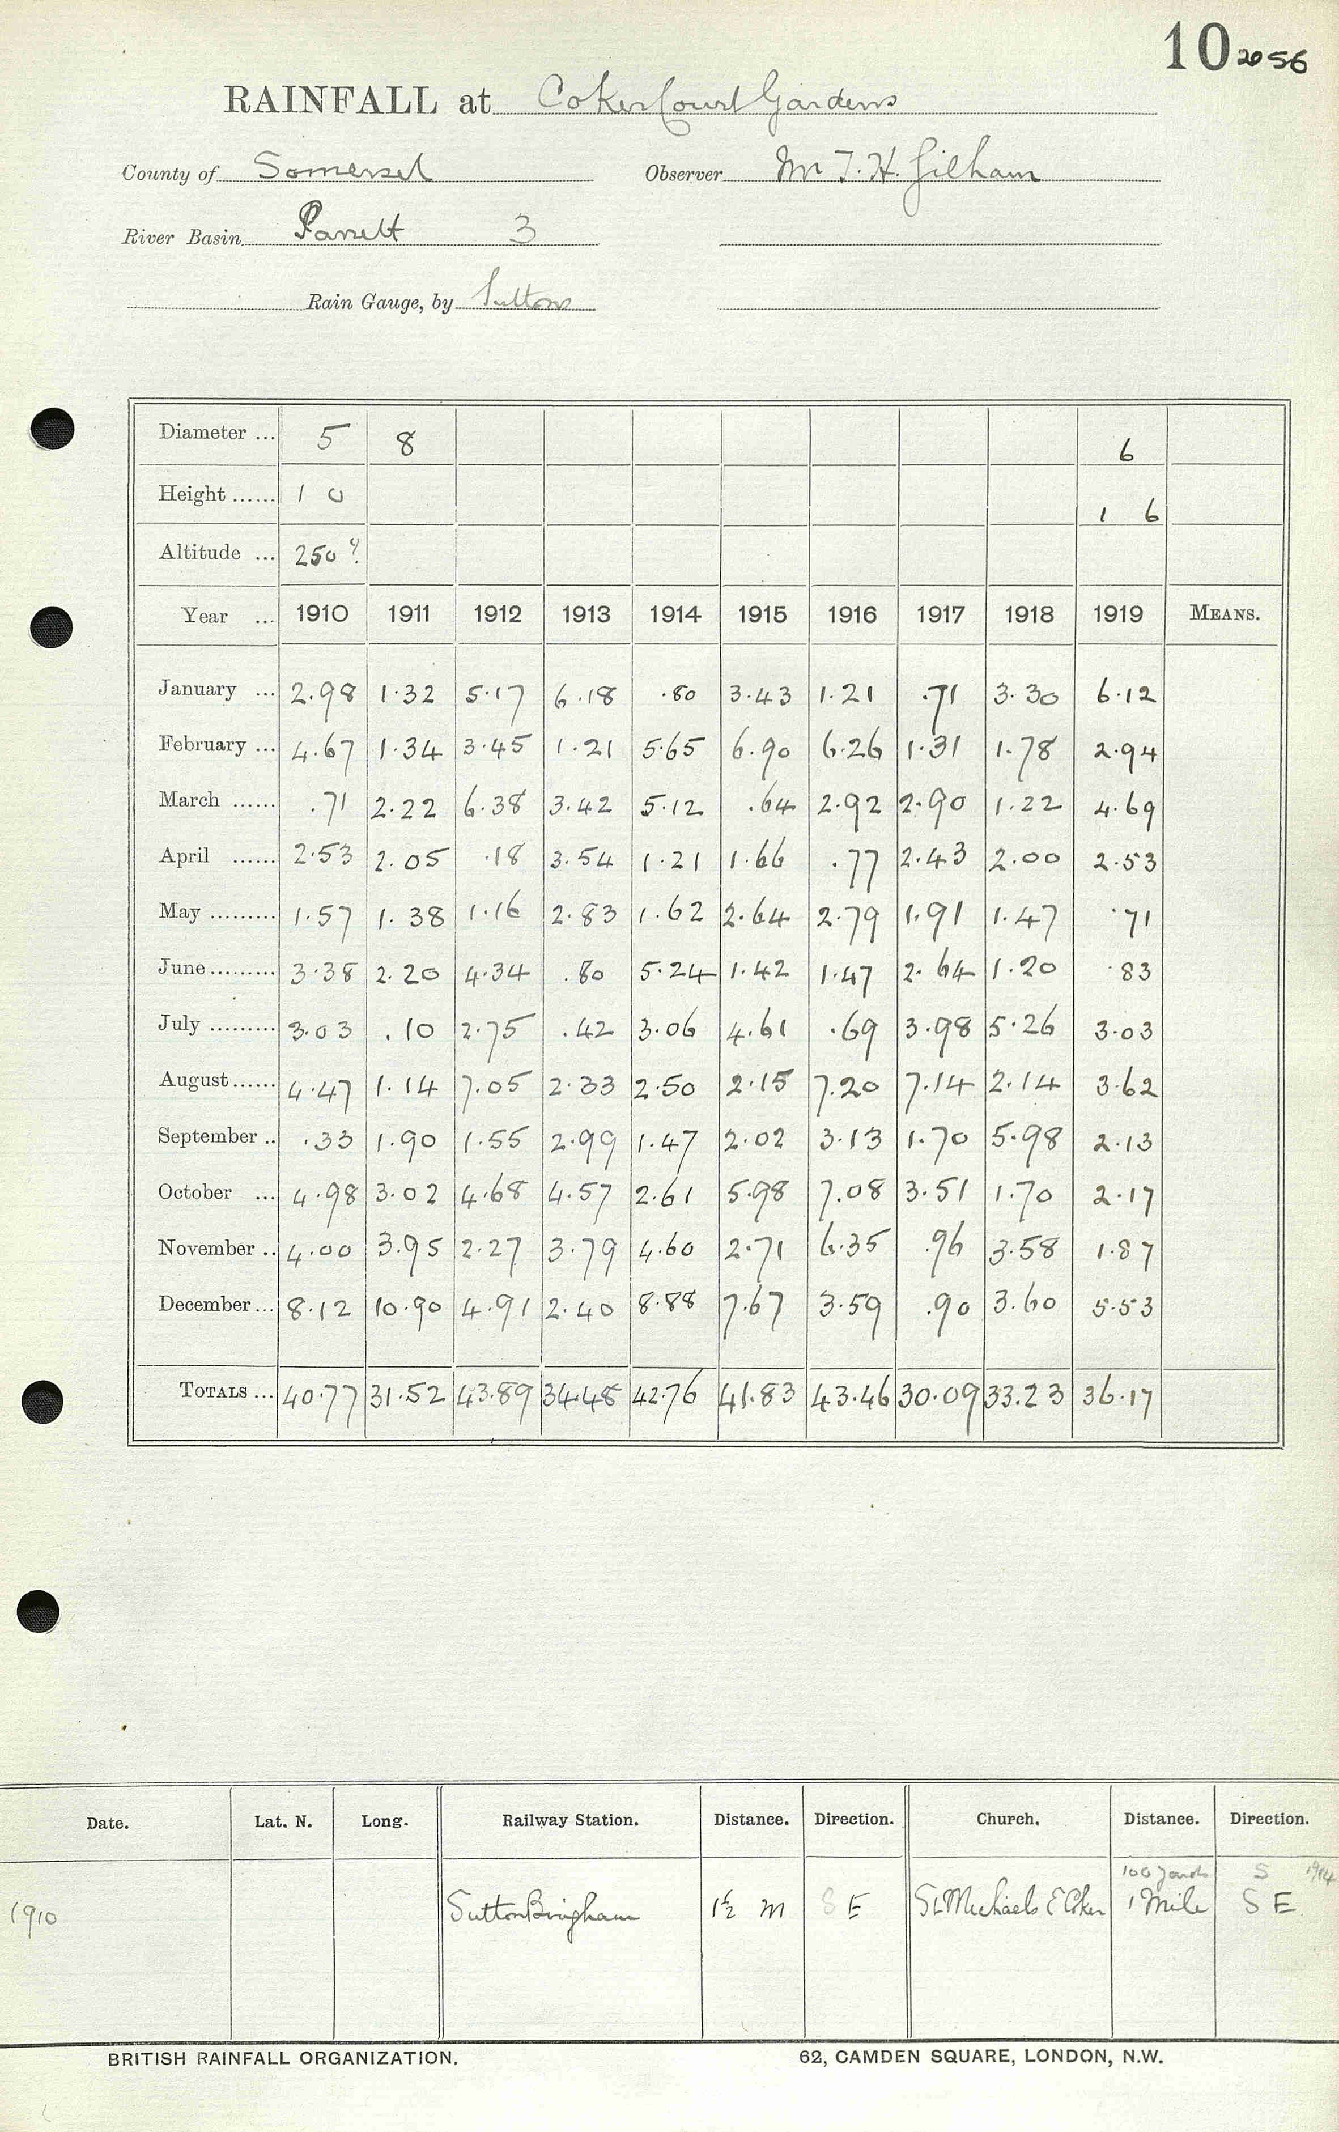 10 2056
RAINFALL at Coker Court Gardens
County of Somerset Observer Mr T. H. Gilham
River Basin Parrett 3
Rain Gauge, by Suttons
Diameter ... 5 8 6
Height ...... 1 0 1 6
Altitude ... 250 ?
Year ... 1910 1911 1912 1913 1914 1915 1916 1917 1918 1919 MEANS.
January ... 2.98 1.32 5.17 6.18 .80 3.43 1.21 .71 3.30 6.12
February ... 4.67 1.34 3.45 1.21 5.65 6.90 6.26 1.31 1.78 2.94
March ...... .71 2.22 6.38 3.42 5.12 .64 2.92 2.90 1.22 4.69
April ...... 2.53 2.05 .18 3.54 1.21 1.66 .77 2.43 2.00 2.53
May ......... 1.57 1.38 1.16 2.83 1.62 2.64 2.79 1.91 1.47 .71
June ......... 3.38 2.20 4.34 .80 5.24 1.42 1.47 2.64 1.20 .83
July ......... 3.03 .10 2.75 .42 3.06 4.61 .69 3.98 5.26 3.03
August ...... 4.47 1.14 7.05 2.33 2.50 2.15 7.20 7.14 2.14 3.62
September .. .33 1.90 1.55 2.99 1.47 2.02 3.13 1.70 5.98 2.13
October ... 4.98 3.02 4.68 4.57 2.61 5.98 7.08 3.51 1.70 2.17
November .. 4.00 3.95 2.27 3.79 4.60 2.71 6.35 .96 3.58 1.87
December ... 8.12 10.90 4.91 2.40 8.88 7.67 3.59 .90 3.60 5.53
TOTALS ... 40.77 31.52 43.89 34.48 42.76 41.83 43.46 30.09 33.23 36.17
Date. Lat. N. Long. Railway Station. Distance. Direction. Church. Distance. Direction.
100 yards S 1914
1910 Sutton Bingham 1½ m S E St Michaels E Coker 1 Mile S E
BRITISH RAINFALL ORGANIZATION. 62, CAMDEN SQUARE, LONDON, N.W.